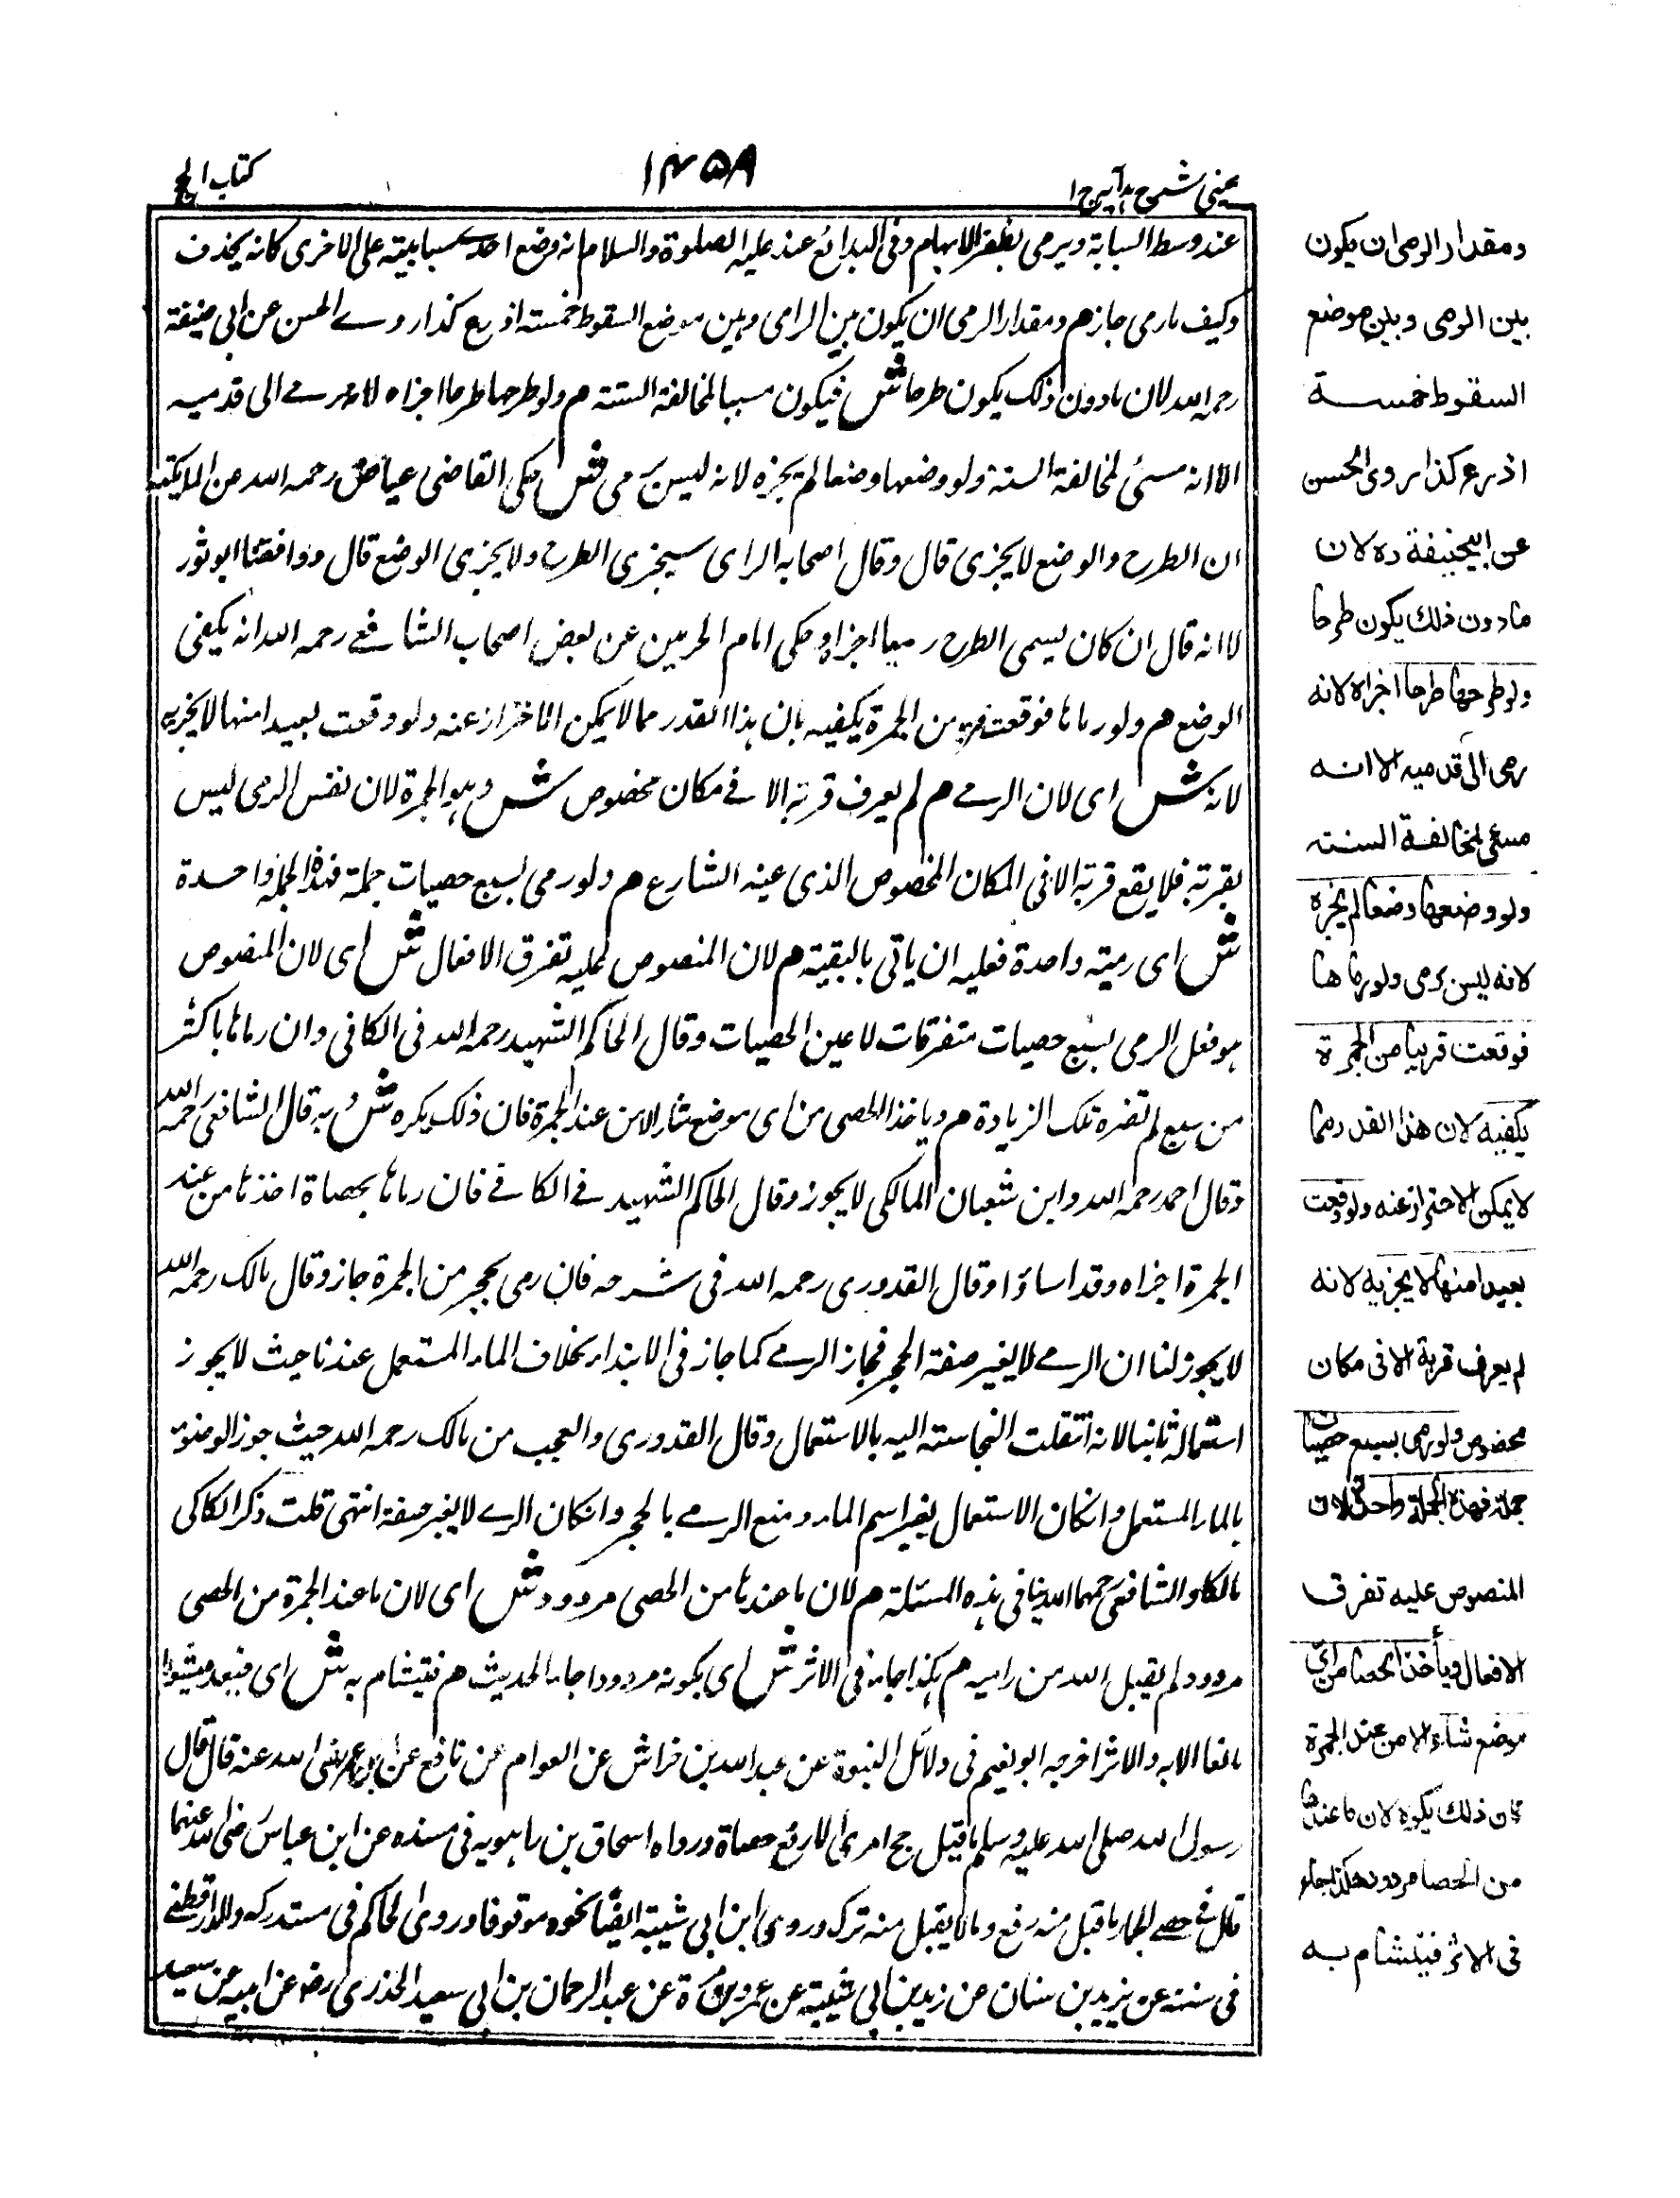 عینی شرح ہدایہ ج ۱
۱۴۵۹
کتاب الحج
عند وسط السبابة ویرمی بظفر الابهام وفی البدائع عند علیه الصلوة والسلام انه وضع احدی سبابیته علی الاخری کانه یخذف
وکیف ما رمی جاز هم ومقدار الرمی ان یکون بین الرامی وبین موضع السقوط خمسته اذرع کذا روے الحسن عن ابی حنیفة
رحمه الله لان مادون ذلک یکون طرحا ش فیکون مسیبا لمخالفة السنته هم ولو طرحها طرحا اجزاه لانه رمے الی قدمیه
الا انه مسئ لمخالفة السنة ولو وضعها وضعا لم یجزه لانه لیس برمی ش حکی القاضی عیاض رحمه الله عن المالکیته
ان الطرح والوضع لا یجزی قال وقال اصحاب الرای سیجزی الطرح ولا یجزی الوضع قال ووافقنا ابو ثور
لا انه قال ان کان یسمی الطرح رمیا اجزاه وحکی امام الحرمین عن بعض اصحاب الشافعے رحمه الله انه یکفی
الوضع هم ولو رماها فوقعت قریبا من الجمرة یکفیه بان هذا القدر مما لا یمکن الاحتراز عنه ولو وقعت بعیدا منها لا یجزیه
لانه ش ای لان الرمے هم لم یعرف قربة الا فے مکان مخصوص ش وهو الجمرة لان نفس الرمی لیس
بقربته فلا یقع قربة الا فی المکان المخصوص الذی عینه الشارع هم ولو رمی بسبع حصیات جملة فهذه الجملة واحدة
ش ای رمیته واحدة فعلیه ان یاتی بالبقیته هم لان المنصوص علیه تفرق الافعال ش ای لان المنصوص
هو فعل الرمی بسبع حصیات متفرقات لا عین الحصیات وقال الحاکم الشهید رحمه الله فی الکافی وان رماها باکثر
من سبع لم تضره تلک الزیادة هم ویاخذ الحصی من ای موضع شاء الا من عند الجمرة فان ذلک یکره ش وبه قال الشافعی رحمه الله
وقال احمد رحمه الله وابن شعبان المالکی لا یجوز وقال الحاکم الشهید فے الکافے فان رماها بحصاة اخذها من عند
الجمرة اجزاه وقد اساؤا وقال القدوری رحمه الله فی شرحه فان رمی بحجر من الجمرة جاز وقال مالک رحمه الله
لا یجوز لنا ان الرمے لا یغیر صفة الحجر فجاز الرمے کما جاز فی الابتداء بخلاف الماء المستعمل عندنا حیث لا یجوز
استعماله ثانیا لانه انتقلت النجاسته الیه بالاستعمال وقال القدوری والعجب من مالک رحمه الله حیث جوز الوضوء
بالماء المستعمل وانکان الاستعمال یغیر اسم الماء ومنع الرمے بالحجر وانکان الرمے لا یغیر صفة انتهی قلت ذکر الکاکی
مالکا والشافعی رحمهما الله فی هذه المسئلة هم لان ما عندها من الحصی مردود ش ای لان ما عند الجمرة من الحصی
مردود لم یقبل الله من رامیه هم هکذا جاء فی الاثر ش ای بکونه مردودا جاء الحدیث هم فیتشام به ش ای
والاثر اخرجه ابو نعیم فی دلائل النبوة عن عبد الله بن خراش عن العوام عن نافع عن ابن عمر رضی الله عنه قال قال
رسول الله صلی الله علیه وسلم ما قبل حج امرئ الا رفع حصاة ورواه اسحاق بن راهویه فی مسنده عن ابن عباس رضی الله عنهما
قال فے حصی الجمار ما قبل منه رفع وما لا یقبل منه ترک وروی ابن ابی شیبة ایضا نحوه موقوفا وروی الحاکم فی مستدرکه والدارقطنے
فی سننه عن یزید بن سنان عن زید بن ابی شیبة عن عمرو بن مرة عن عبد الرحمان بن ابی سعید الخدری رض عن ابیه سعید
ومقدار الرمی ان یکون
بین الرمی وبین موضع
السقوط خمسة
اذرع کذا روی الحسن
عن ابیحنیفة ره لان
مادون ذلک یکون طرحا
ولو طرحها طرحا اجزاه لانه
رمی الی قدمیه الا انه
مسئ لمخالفة السنته
ولو وضعها وضعا لم یجزه
لانه لیس برمی ولو رماها
فوقعت قریبا من الجمرة
یکفیه لان هذا القدر مما
لا یمکن الاحتراز عنه ولو وقعت
بعیدا منها لا یجزیه لانه
لم یعرف قربة الا فی مکان
مخصوص ولو رمی بسبع حصیات
جملة فهذه الجملة واحدة لان
المنصوص علیه تفرق
الافعال ویأخذ الحصا من ای
موضع شاء الا من عند الجمرة
فان ذلک یکره لان ما عندها
من الحصا مردود هکذا جاء
فی الاثر فیتشام به